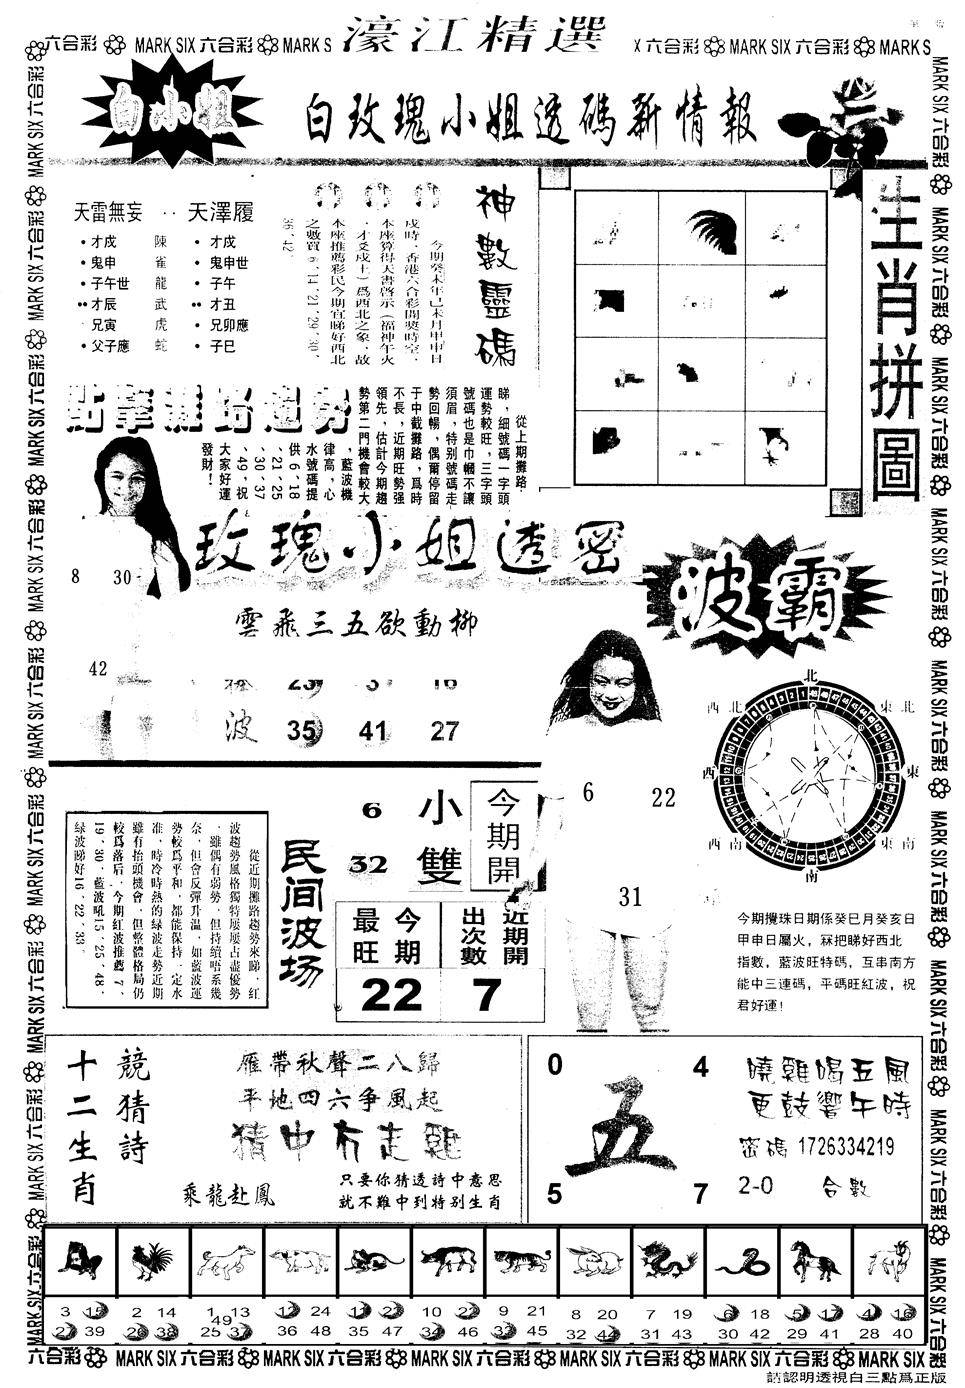 濠江精選
六合彩 MARK SIX 六合彩 MARK S
X 六合彩 MARK SIX 六合彩 MARK S
白小姐
白玫瑰小姐透碼新情報
天雷無妄 ‥ 天澤履
・才戍 陳 ・才戍
・鬼申 雀 ・鬼申世
・子午世 龍 ・子午
‥才辰 武 ‥才丑
兄寅 虎 ・兄卯應
・父子應 蛇 ・子巳
神數靈碼
今期癸未年己未月甲申日
戍時、香港六合彩開獎時空，
本座算得天書啓示（福神午火
、才爻戍土）爲西北之象，故
本座推薦彩民今期宜睇好西北
之數買6、14、21、29、30、
36、42
生肖拼圖
點擊攤路趨勢
從上期攤路
睇，細號碼一字頭
運勢較旺，三字頭
號碼也是巾幗不讓
須眉，特別號碼走
勢回暢，偶爾停留
于中截攤路，爲時
不長，近期旺勢强
領先，估計今期趨
勢第二門機會較大
，藍波機
律高，心
水號碼提
供6、18
、21、25
、30、37
、49，祝
大家好運
發財！
玫瑰小姐透密
8 30
42
雲飛三五欲動柳
23 3 16
波 35 41 27
波霸
6 22
31
北
西北 東北
西 東
西南 東南
南
今期攪珠日期係癸巳月癸亥日
甲申日屬火，冧把睇好西北
指數，藍波旺特碼，互串南方
能中三連碼，平碼旺紅波，祝
君好運！
從近期攤路趨勢來睇，紅
波趨勢風格獨特屢屢占盡優勢
，雖偶有弱勢，但持續唔系幾
奈，但會反彈升温，如藍波運
勢較爲平和，都能保持一定水
准，時冷時熱的緑波走勢近期
雖有抬頭機會，但整體格局仍
較爲落后，今期紅波推薦7、
19、30，藍波吼15、25、48，
緑波睇好16、22、33。
民间波场
6 小
32 雙
今期開
今期最旺
22
近期開出次數
7
十二生肖
競猜詩
雁帶秋聲二八歸
平地四六爭風起
猜中有走雞
乘龍赴鳳
只要你猜透詩中意思
就不難中到特別生肖
0 4
五
5 7
曉雞唱五風
更鼓響午時
密碼 1726334219
2-0 合數
3 15 27 39
2 14 26 38
1 13 25 37 49
12 24 36 48
11 23 35 47
10 22 34 46
9 21 33 45
8 20 32 44
7 19 31 43
6 18 30 42
5 17 29 41
4 16 28 40
六合彩 MARK SIX 六合彩 MARK SIX 六合彩 MARK SIX 六合彩 MARK SIX 六合彩 MARK SIX 六合彩 MARK SIX
請認明透視白三點爲正版